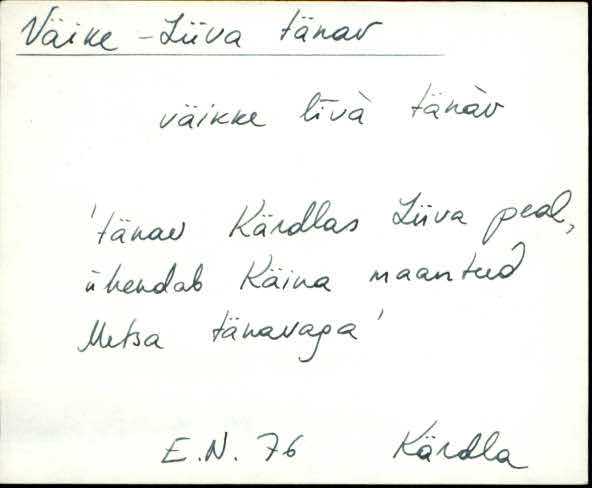 Väike-Liiva tänav
väikke līvà tänàv
'tänav Kärdlas Liiva peal,
ühendab Käina maanteed
Metsa tänavaga'
E.N. 76 Kärdla